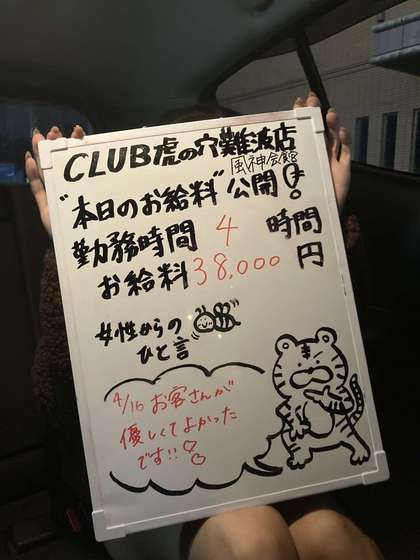 CLUB虎の穴難波店
風神会館
"本日のお給料"公開!
勤務時間 4 時間
お給料 38,000 円
女性からの
ひと言
4/16 お客さんが
優しくてよかった
です!!